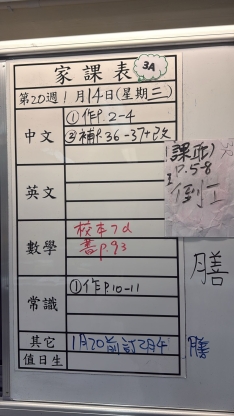 家課表 3A
第20週 1月14日(星期三)
中文
①作P.2-4
②補P.36-37+已文
英文
數學
校本7d
書P.93
常識
①作P.10-11
其它
1月20前訂2月4
值日生
P.5-8
膳
膳